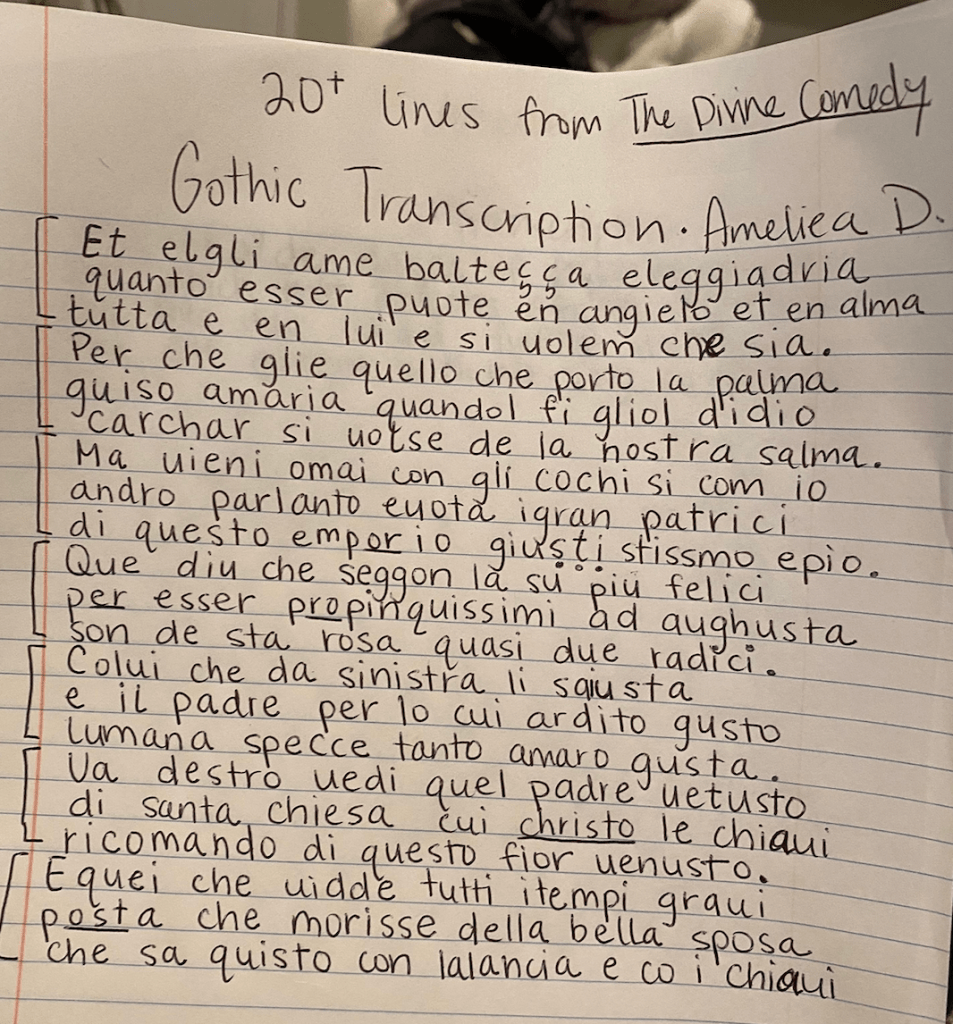 20+ lines from The Divine Comedy
Gothic Transcription. Ameliea D.
Et elgli ame balteçça eleggiadria
quanto esser puote en angielo et en alma
tutta e en lui e si uolem che sia.
Per che glie quello che porto la palma
guiso amaria quandol fi gliol d'idio
carchar si uolse de la nostra salma.
Ma uieni omai con gli cochi si com io
andro parlanto euota igran patrici
di questo emporio giusti stissmo epio.
Que diu che seggon la su piu felici
per esser propinquissimi ad aughusta
son de sta rosa quasi due radici.
Colui che da sinistra li sgiusta
e il padre per lo cui ardito gusto
lumana specce tanto amaro gusta.
Va destro uedi quel padre uetusto
di santa chiesa cui christo le chiaui
ricomando di questo fior uenusto.
E quei che uidde tutti itempi graui
posta che morisse della bella sposa
che sa quisto con lalancia e co i chiaui